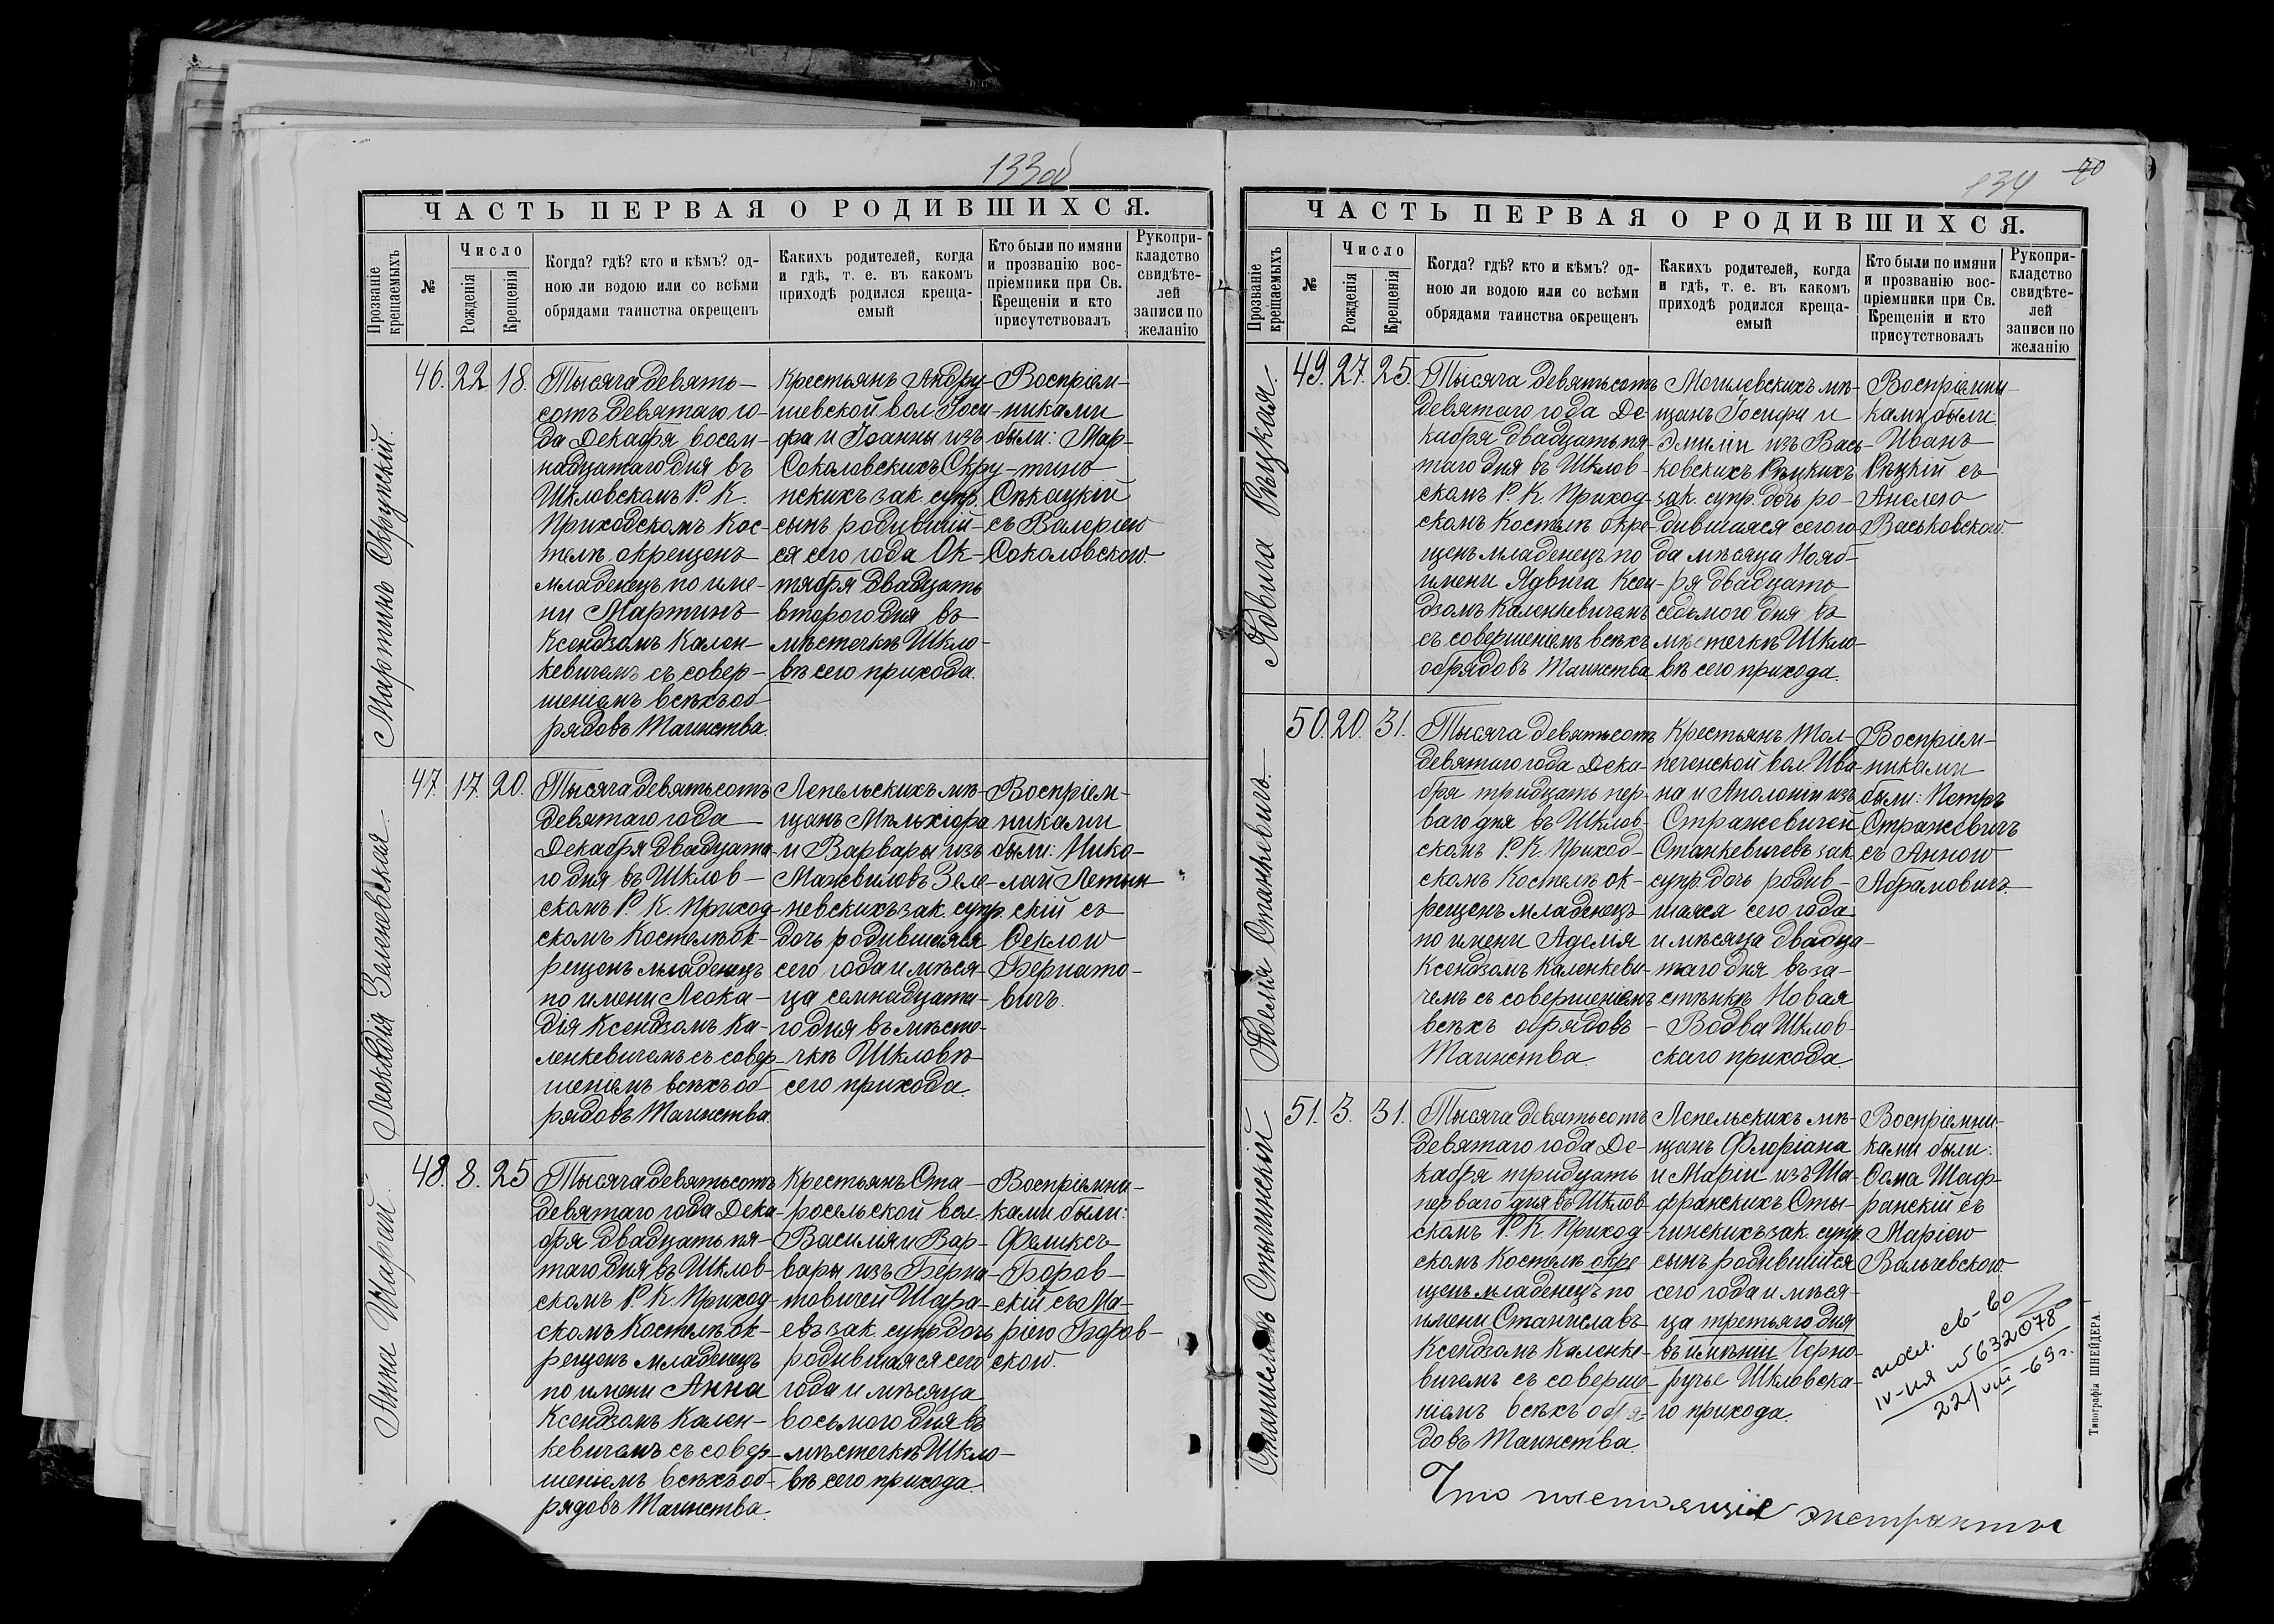 133об
ЧАСТЬ ПЕРВАЯ О РОДИВШИХСЯ.
Прозваніе крещаемыхъ
№
Число
Рожденія
Крещенія
Когда? гдѣ? кто и кѣмъ? од-
ною ли водою или со всѣми
обрядами таинства окрещенъ
Какихъ родителей, когда
и гдѣ, т. е. въ какомъ
приходѣ родился креща-
емый
Кто были по имяни
и прозванію вос-
пріемники при Св.
Крещеніи и кто
присутствовалъ
Рукопри-
кладство
свидѣте-
лей
записи по
желанію
Мартинъ Скрупскій.
46. 22 18.
Тысяча девять-
сотъ девятаго го-
да Декабря восем-
надцатаго дня въ
Шкловскомъ Р. К.
Приходскомъ Кос-
телѣ окрещенъ
младенецъ по име-
ни Мартинъ
Ксендзомъ Кален-
кевичемъ съ совер-
шеніемъ всѣхъ об-
рядовъ Таинства.
Крестьянъ Андру-
шевской вол. Іоси-
фа и Іоанны изъ
Соколовскихъ Скру-
пскихъ зак. супр.
сынъ родившій-
ся сего года Ок-
тября двадцать
второго дня въ
мѣстечкѣ Шкло-
вѣ сего прихода.
Воспріем-
никами
были: Мар-
тинъ
съ Валеріею
Соколовскою.
Леокадія Зеленевская.
47. 17. 20.
Тысяча девятьсотъ
девятаго года
Декабря двадцата-
го дня въ Шклов-
скомъ Р. К. Приход-
скомъ Костелѣ ок-
рещенъ младенецъ
по имени Леока-
дія Ксендзомъ Ка-
ленкевичемъ съ совер-
шеніемъ всѣхъ об-
рядовъ Таинства.
Лепельскихъ мѣ-
щанъ Мельхіора
и Варвары изъ
Маневиловъ Зеле-
невскихъ зак. супр.
дочь родившаяся
сего года и мѣся-
ца семнадцата-
го дня въ мѣсте-
чкѣ Шкловѣ
сего прихода.
Воспріем-
никами
были: Нико-
лай Летын-
скій съ
Ѳеклою
Бернато-
вичъ.
Анна Шарай.
48. 8. 25
Тысяча девятьсотъ
девятаго года Дека-
бря двадцать пя-
таго дня въ Шклов-
скомъ Р. К. Приход-
скомъ Костелѣ ок-
рещенъ младенецъ
по имени Анна
Ксендзомъ Кален-
кевичемъ съ совер-
шеніемъ всѣхъ об-
рядовъ Таинства.
Крестьянъ Ста-
росельской вол.
Василія и Вар-
вары изъ Берна-
товичей Шара-
евъ зак. супр. дочь
родившаяся сего
года и мѣсяца
восьмого дня въ
мѣстечкѣ Шкло-
вѣ сего прихода.
Воспріемни-
ками были:
Феликсъ
Боров-
скій съ Ма-
ріею Боров-
скою.
134
70
ЧАСТЬ ПЕРВАЯ О РОДИВШИХСЯ.
Прозваніе крещаемыхъ
№
Число
Рожденія
Крещенія
Когда? гдѣ? кто и кѣмъ? од-
ною ли водою или со всѣми
обрядами таинства окрещенъ
Какихъ родителей, когда
и гдѣ, т. е. въ какомъ
приходѣ родился креща-
емый
Кто были по имяни
и прозванію вос-
пріемники при Св.
Крещеніи и кто
присутствовалъ
Рукопри-
кладство
свидѣте-
лей
записи по
желанію
Ядвига Рѣцкая.
49. 27. 25.
Тысяча девятьсотъ
девятаго года Де-
кабря двадцать пя-
таго дня въ Шклов-
скомъ Р. К. Приход-
скомъ Костелѣ окре-
щенъ младенецъ по
имени Ядвига Ксен-
дзомъ Каленкевичемъ
съ совершеніемъ всѣхъ
обрядовъ Таинства
Могилевскихъ мѣ-
щанъ Іосифа и
Эмиліи изъ Вась-
ковскихъ Рѣцкихъ
зак. супр. дочь ро-
дившаяся сего го-
да мѣсяца Нояб-
ря двадцать
седьмого дня въ
мѣстечкѣ Шкло-
вѣ сего прихода.
Воспріемни-
ками были:
Иванъ
Рѣцкій съ
Анелею
Васьковскою.
Аделія Станкевичъ.
50. 20. 31.
Тысяча девятьсотъ
девятаго года Дека-
бря тридцать пер-
ваго дня въ Шклов-
скомъ Р. К. Приход-
скомъ Костелѣ ок-
рещенъ младенецъ
по имени Аделія
Ксендзомъ Каленкеви-
чемъ съ совершеніемъ
всѣхъ обрядовъ
Таинства.
Крестьянъ Тол-
печенской вол. Ива-
на и Аполоніи изъ
Стражевичей
Станкевичевъ зак.
супр. дочь родив-
шаяся сего года
и мѣсяца двадца-
таго дня въ за-
стѣнкѣ Новая
Водва Шклов-
скаго прихода.
Воспріем-
никами
были: Петръ
Стражевичъ
съ Анною
Абрамовичъ.
Станиславъ Стычинскій
51. 3. 31.
Тысяча девятьсотъ
девятаго года Де-
кабря тридцать
перваго дня въ Шклов-
скомъ Р. К. Приход-
скомъ Костелѣ окре-
щенъ младенецъ по
имени Станиславъ
Ксендзомъ Каленке-
вичемъ съ соверше-
ніемъ всѣхъ обря-
довъ Таинства.
Лепельскихъ мѣ-
щанъ Флоріана
и Маріи изъ Ша-
франскихъ Сты-
чинскихъ зак. супр.
сынъ родившійся
сего года и мѣся-
ца третьяго дня
въ имѣніи Черно-
ручье Шкловска-
го прихода.
Воспріемни-
ками были:
Ѳома Шаф-
ранскій съ
Маріею
Вальчевскою.
св-во
IV-ИЯ №632078
22/VIII-69г.
Что настоящіе экстракты
Типографія ШНЕЙДЕРА.